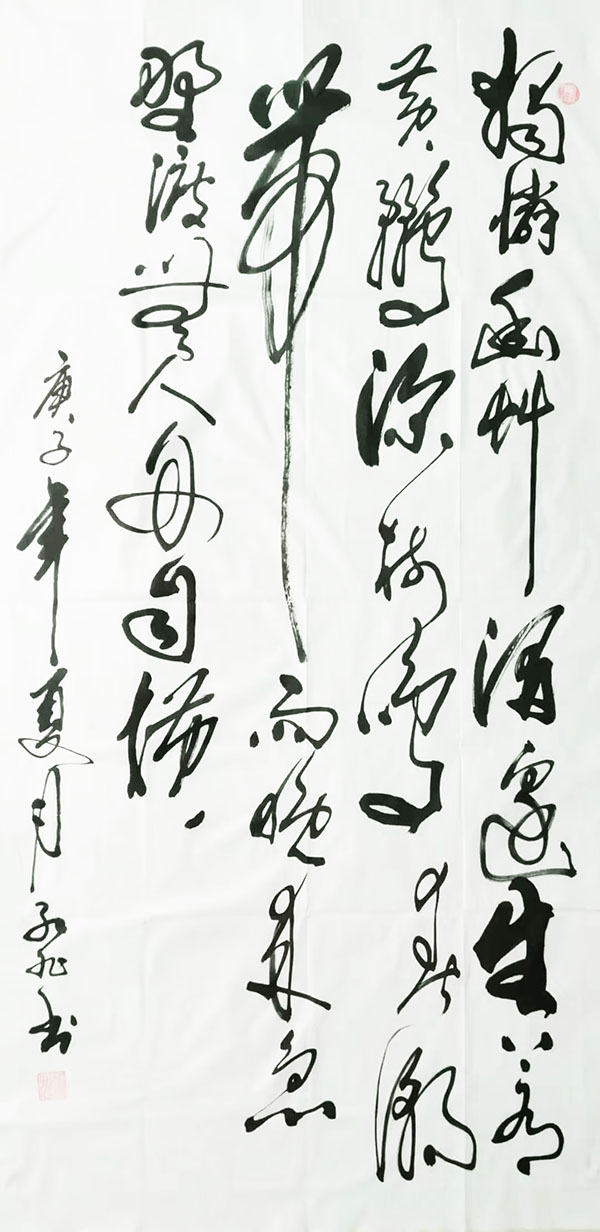 獨憐幽艸澗邊生上有
黃鸝深樹鳴春潮
帶雨晚來急
野渡無人舟自橫
庚子年夏月書